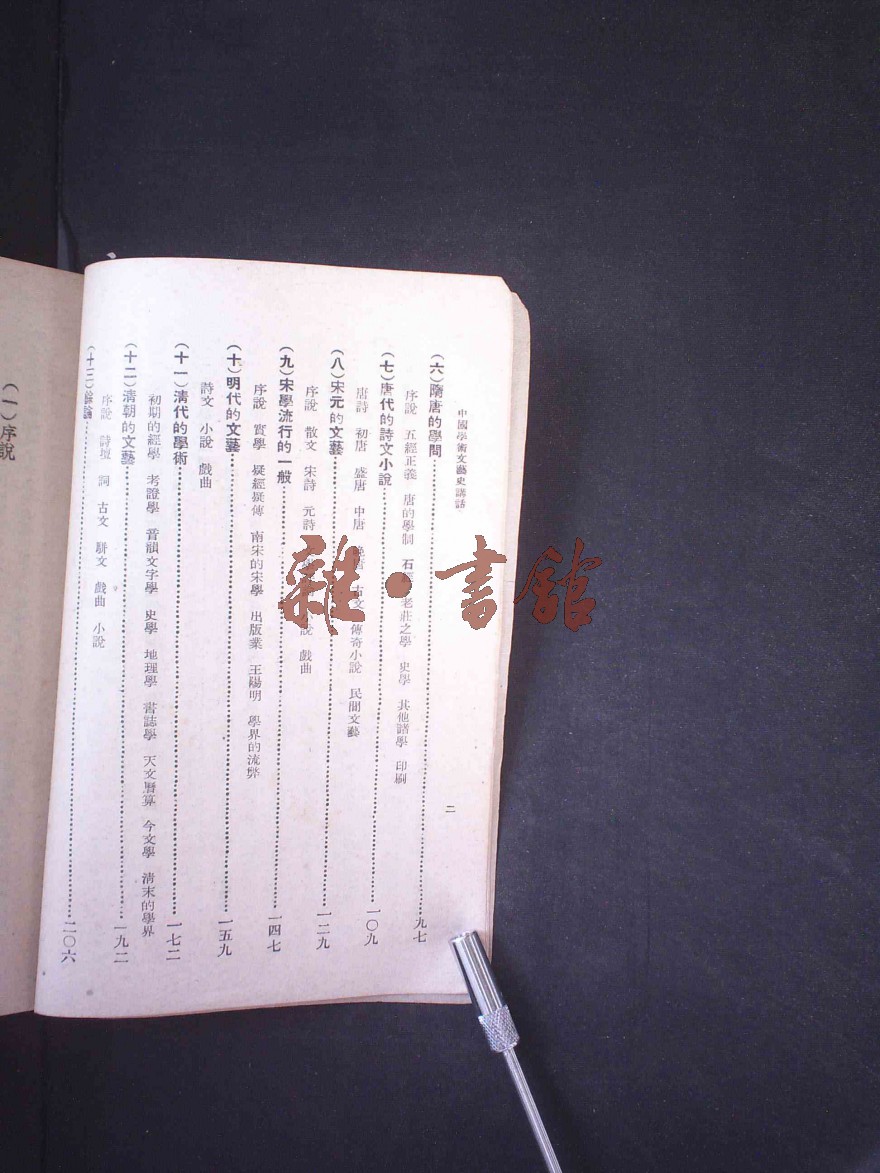 中國學術文藝史講話
二
(六)隋唐的學問……九七
序說 五經正義 唐的學制 石 老莊之學 史學 其他諸學 印刷
(七)唐代的詩文小說……一〇九
唐詩 初唐 盛唐 中唐 晚唐 古文 傳奇小說 民間文藝
(八)宋元的文藝……一二九
序說 散文 宋詩 元詩 小說 戲曲
(九)宋學流行的一般……一四七
序說 實學 疑經疑傳 南宋的宋學 出版業 王陽明 學界的流弊
(十)明代的文藝……一五九
詩文 小說 戲曲
(十一)清代的學術……一七二
初期的經學 考證學 音韻文字學 史學 地理學 書誌學 天文曆算 今文學 清末的學界
(十二)清朝的文藝……一九二
序說 詩壇 詞 古文 駢文 戲曲 小說
(十三)餘論……二〇六
(一)序說
雜·書館